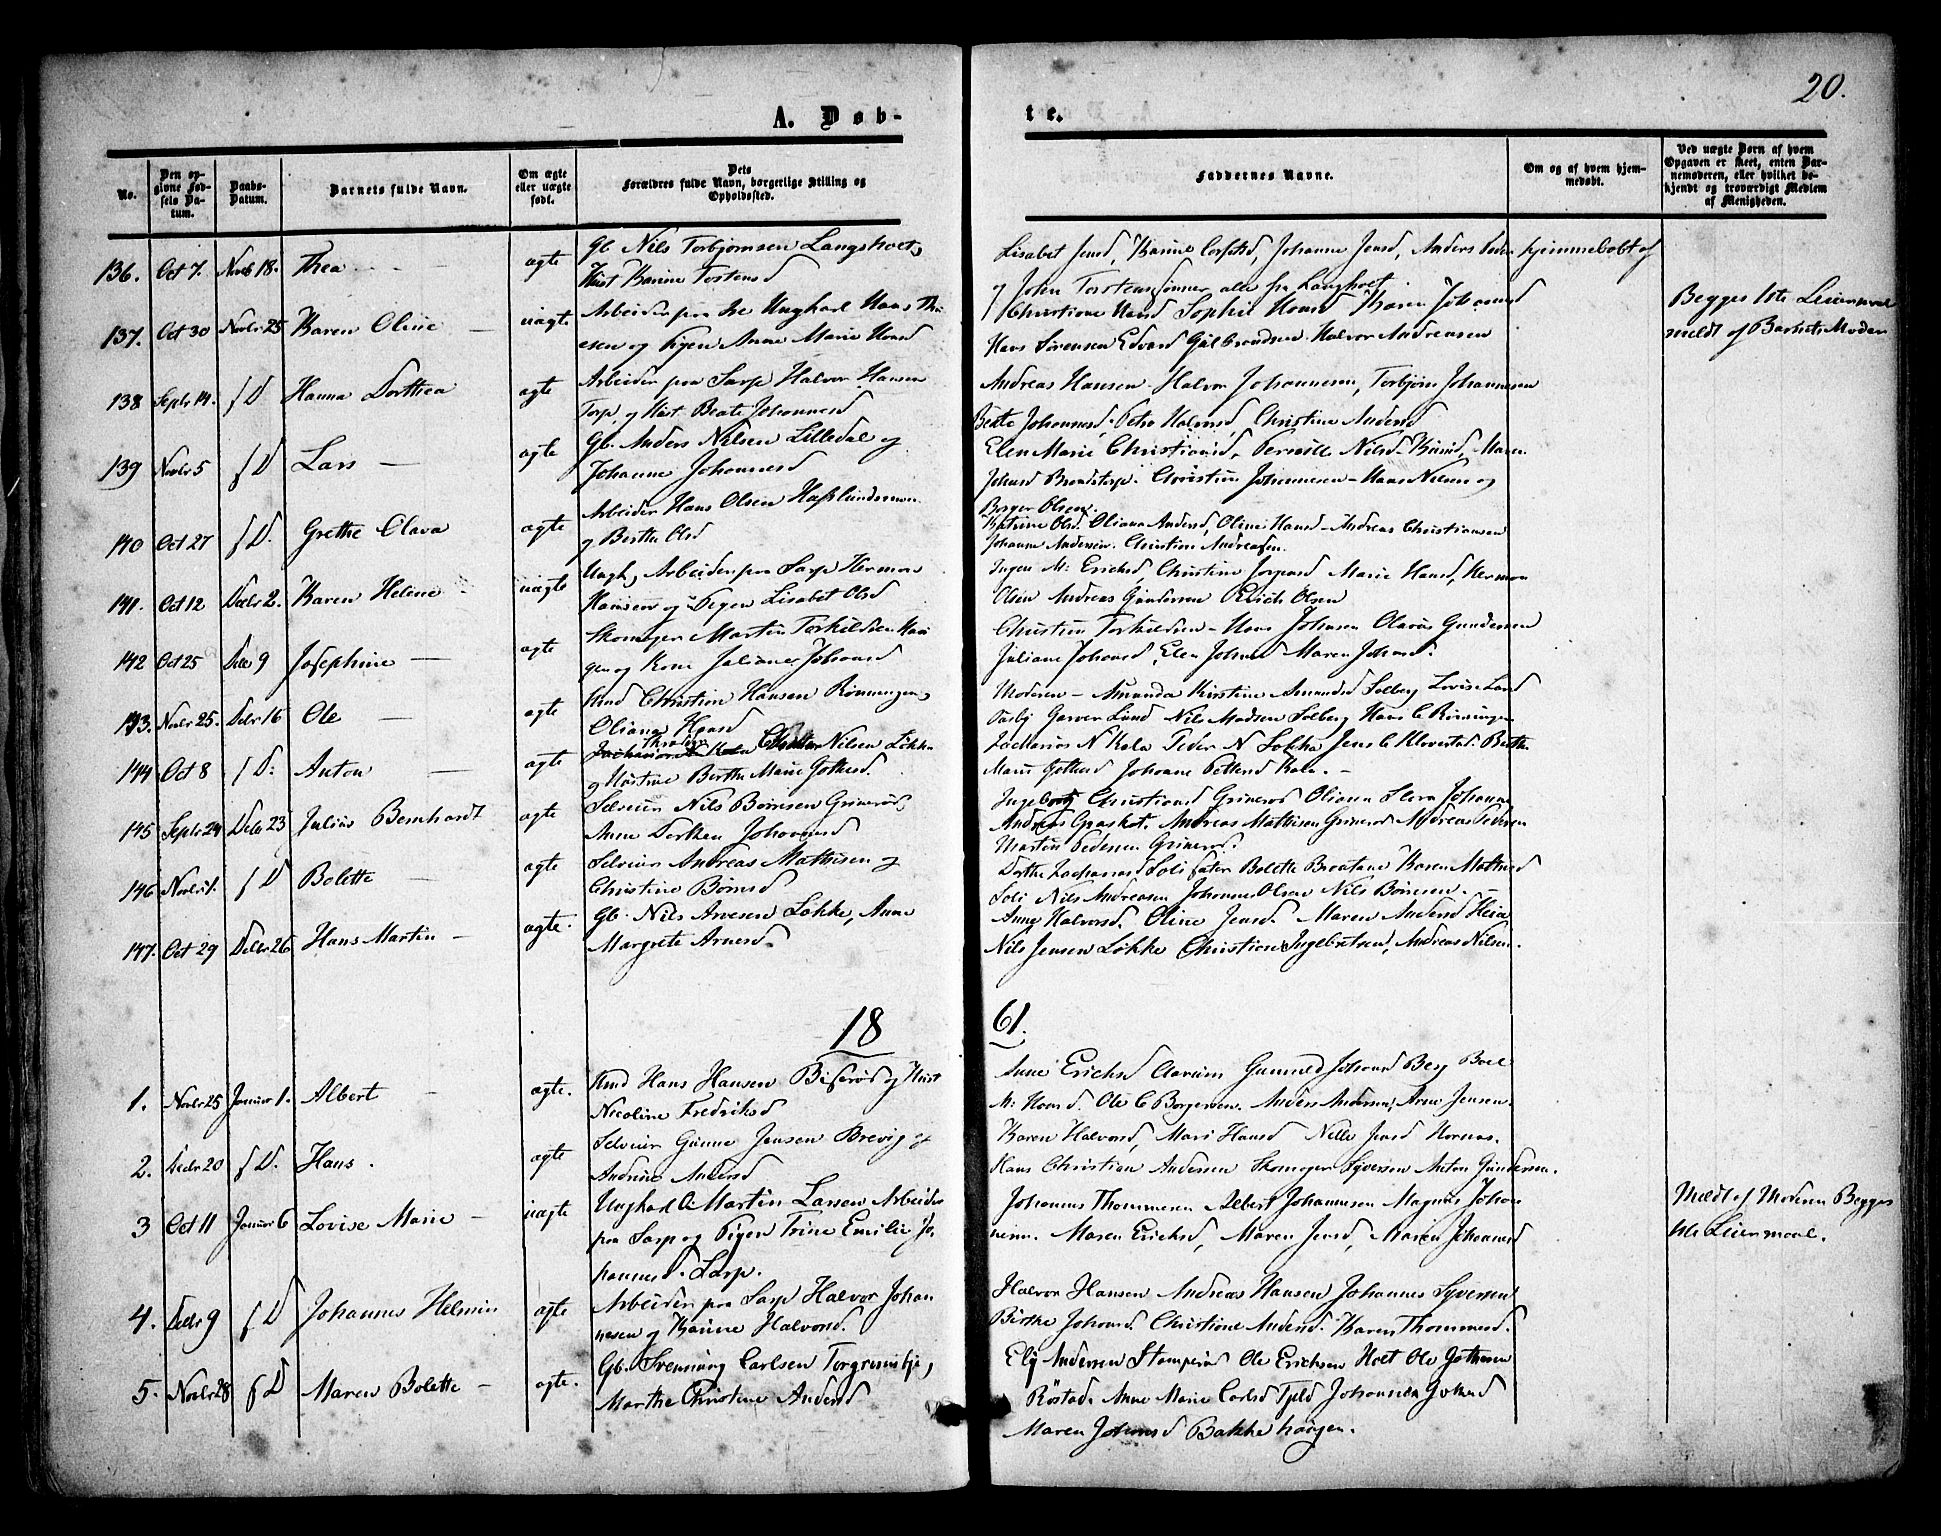 20.
A. Døb-
te.
No.
Den op-
givne Fød-
sels Da-
tum.
Daabs-
Datum.
Barnets fulde Navn.
Om ægte
eller uægte
født.
Dets
Forældres fulde Navn, borgerlige Stilling og
Opholdssted.
Faddernes Navne.
Om og af hvem hjem-
medøbt.
Ved uægte Børn af hvem
Opgaven er skeet, enten Bar-
nemoderen, eller hvilket be-
kjendt og troværdigt Medlem
af Menigheden.
136. Oct 7. Novb 18. Thea
ægte
Gb. Nils Torbjørnsen Langsholt,
Hust Karine Torstensd
Lisabet Jensd, Karine Johanne Jensd, Anders Peder
og John Torstensønner alle fra Langholt.
hjemmedøbt af
137. Oct 30 Novbr 25 Karen Oline
uægte
Arbeider paa Ungkarl Hans Thi
esen og Pigen Anne Marie Hansd
Christiane Hansd Sophie Hansd Karen Johansd
Hans Sørensen Edvard Gulbrandsen Halvor Andreasen
Begges 1ste Leiermaal
meldt af Barnets Moder
138 Septr 14. f D Hanna Dorthea
ægte
Arbeider paa Sarp Halvor Hansen
Torp, og Hust Beate Johannesd
Andreas Hansen Halvor Johannesen, Torbjørn Johannesen
Beate Johannesd, Petra Halvorsd, Christine Andersd
139 Novbr 5 f D Lars
ægte
Gb. Anders Nilsen Lilledal og
Johanne Johannesd
Elen Marie Christiansd, Pernille Nilsd Maren
Johansd Brandstorp. Christian Johannesen Hans Nilsen og
Borger Olsen.
140 Oct 27 f D. Grethe Olava
ægte
Arbeider Hans Olsen Hafslundsmoen
og Berthe Olsd
Katrine Olsd. Oliana Andersd, Oline Hansd Andreas Christiansen
Johannes Andersen. Christian Andreassen.
141. Oct 12 Decbr 2. Karen Helene
uægte
Ungk, Arbeider paa Sarp Herman
Hansen og Pigen Lisabet Olsd
Ingen M: Ericksd, Christine Jørgensd Marie Hansd, Herman
Olsen Andreas Gundersen Erich Olsen
142 Oct 25 Decbr 9 Josephine
ægte
Skomager Martin Torkildsen
gen og Kone Juliane Johansd
Christian Torkildsen Hans Johansen Olavus Gundersen
Juliane Johansd, Elen Johansd Maren Johansd.
143. Novbr 25. Decbr 16 Ole
ægte
Hmd Christian Hansen Rønningen,
Oliana Hansd
Moderen Amunda Kirstine Amundsd Solberg Lovise Land
Garver Lund Nils Madsen Solberg Hans C Rønningen
144 Oct 8 f D: Anton
ægte
Nilsen Løkke
og Hustrue Berthe Marie Gothersd.
Zacharias N Kala Peder N Løkka Jens C Klavestad. Berthe
Marie Johanne Pettersd Kala.
145 Septr 24 Decbr 23 Julius Bernhardt
ægte
Selveier Nils Børnsen Grinerød,
Anne Dorthea Johannesd
Ingeborg Christiansd Grinerød Oliana Johanne
Andreas Andreas Mathisen Grinerød Andreas Pedersen
Martin Pedersen Grinerød.
146 Novbr 1. f D Bolette
ægte
Selveier Andreas Mathisen og
Christine Børnsd
Dorthe Zachariasd Soli Bolette Braatane Karen Mathisd
Soli Nils Andreasen Johannes Olsen Nils Børnsen.
147. Oct 29 Decbr 26 Hans Martin
ægte.
Gb. Nils Arvesen Løkke, Anne
Margrete Arnesd.
Anne Halvorsd. Oline Jensd. Maren Andersd Heia
Nils Jensen Løkke Christian Ingebretsen, Andreas Nilsen.
18
61.
1. Novbr 25 Januar 1. Albert
ægte.
Hmd Hans Hansen Bisserød og Hust
Nicoline Fredriksd
Anne Ericksd Gunnild Johansd Berg
M: Hansd. Ole C Borgersen. Anders Andersen, Arne Jensen.
2. Decbr 20 f D. Hans.
ægte
Selveier Gunne Jensen Brevig og
Andrine Andersd
Karen Halvorsd, Mari Hansd Nille Jensd Hornæs.
Hans Christian Andersen Skomager Syversen Anton Gundersen.
3 Oct 11 Januar 6 Lovise Marie
uægte
Ungkarl O: Martin Larsen Arbeider
paa Sarp og Pigen Trine Emilie Jo,
hannesd. Sarp.
Johannes Thommesen Albert Johannesen Magnus Johan
nesen. Maren Ericksd, Maren Jensd, Maren Johannesd
Meldt af Moderen Begges
1ste Leiermaal.
4. Decbr 9 f D Johannes Helmin
ægte
Arbeider paa Sarp Halvor Johan
nesen og Karine Halvorsd.
Halvor Hansen Andreas Hansen Johannes Syversen
Birthe Johansd. Christiane Andersd. Karen Thommesd.
5. Novbr 28 f D Maren Bolette
ægte.
Gb. Svenning Carlsen Torgrimsbye,
Marthe Christine Andersd
Andersen Stomperød Ole Ericksen Holt Ole
Røstad. Anne Marie Carlsd Johannes
Maren Johansd Bakkehaugen.